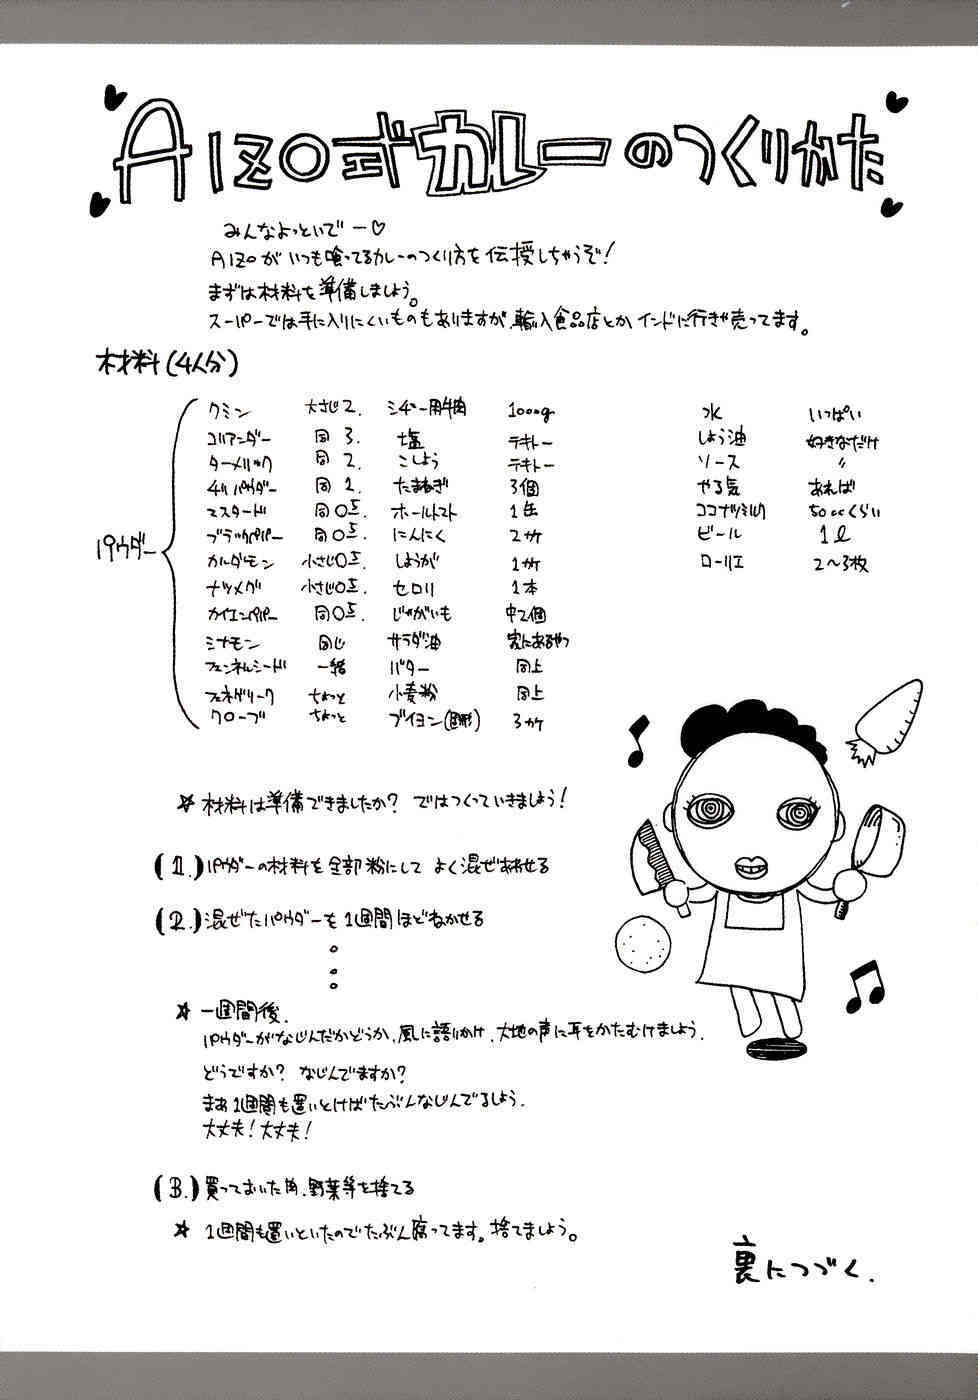 AIZO式カレーのつくりかた
みんなよっといでー♡
AIZOがいつも喰ってるカレーのつくり方を伝授しちゃうぞ!
まずは材料を準備しましょう。
スーパーでは手に入りにくいものもありますが、輸入食品店とかインドに行きゃ売ってます。
材料(4人分)
パウダー
クミン 大さじ2. シチュー用牛肉 1000g 水 いっぱい
コリアンダー 同 3. 塩 テキトー しょう油 好きなだけ
ターメリック 同 2. こしょう テキトー ソース 〃
チリパウダー 同 1. たまねぎ 3個 やる気 あれば
マスタード 同 0.5. ホールトマト 1缶 ココナツミルク 50ccくらい
ブラックペパー 同 0.5. にんにく 2ケ ビール 1ℓ
カルダモン 小さじ0.5. しょうが 1ケ ローリエ 2〜3枚
ナツメグ 小さじ0.5. セロリ 1本
カイエンペパー 同 0.5. じゃがいも 中2個
シナモン 同じ サラダ油 家にあるやつ
フェンネルシード 一緒 バター 同上
フェネグリーク ちょっと 小麦粉 同上
クローブ ちょっと ブイヨン(固形) 3ケ
☆ 材料は準備できましたか? ではつくっていきましょう!
(1.) パウダーの材料を全部粉にして よく混ぜあわせる
(2.) 混ぜたパウダーを1週間ほどねかせる
☆ 一週間後.
パウダーがなじんだかどうか、風に語りかけ、大地の声に耳をかたむけましょう.
どうですか? なじんでますか?
まぁ1週間も置いとけばたぶんなじんでるしょう.
大丈夫! 大丈夫!
(3.) 買っておいた肉、野菜等を捨てる
☆ 1週間も置いといたのでたぶん腐ってます。捨てましょう。
裏につづく.